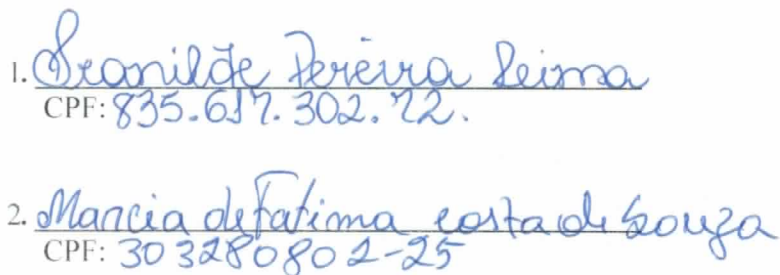 1. Iranilde Pereira Leima
CPF: 835.617.302.72.
2. Marcia de Fatima costa de Souza
CPF: 303280802-25